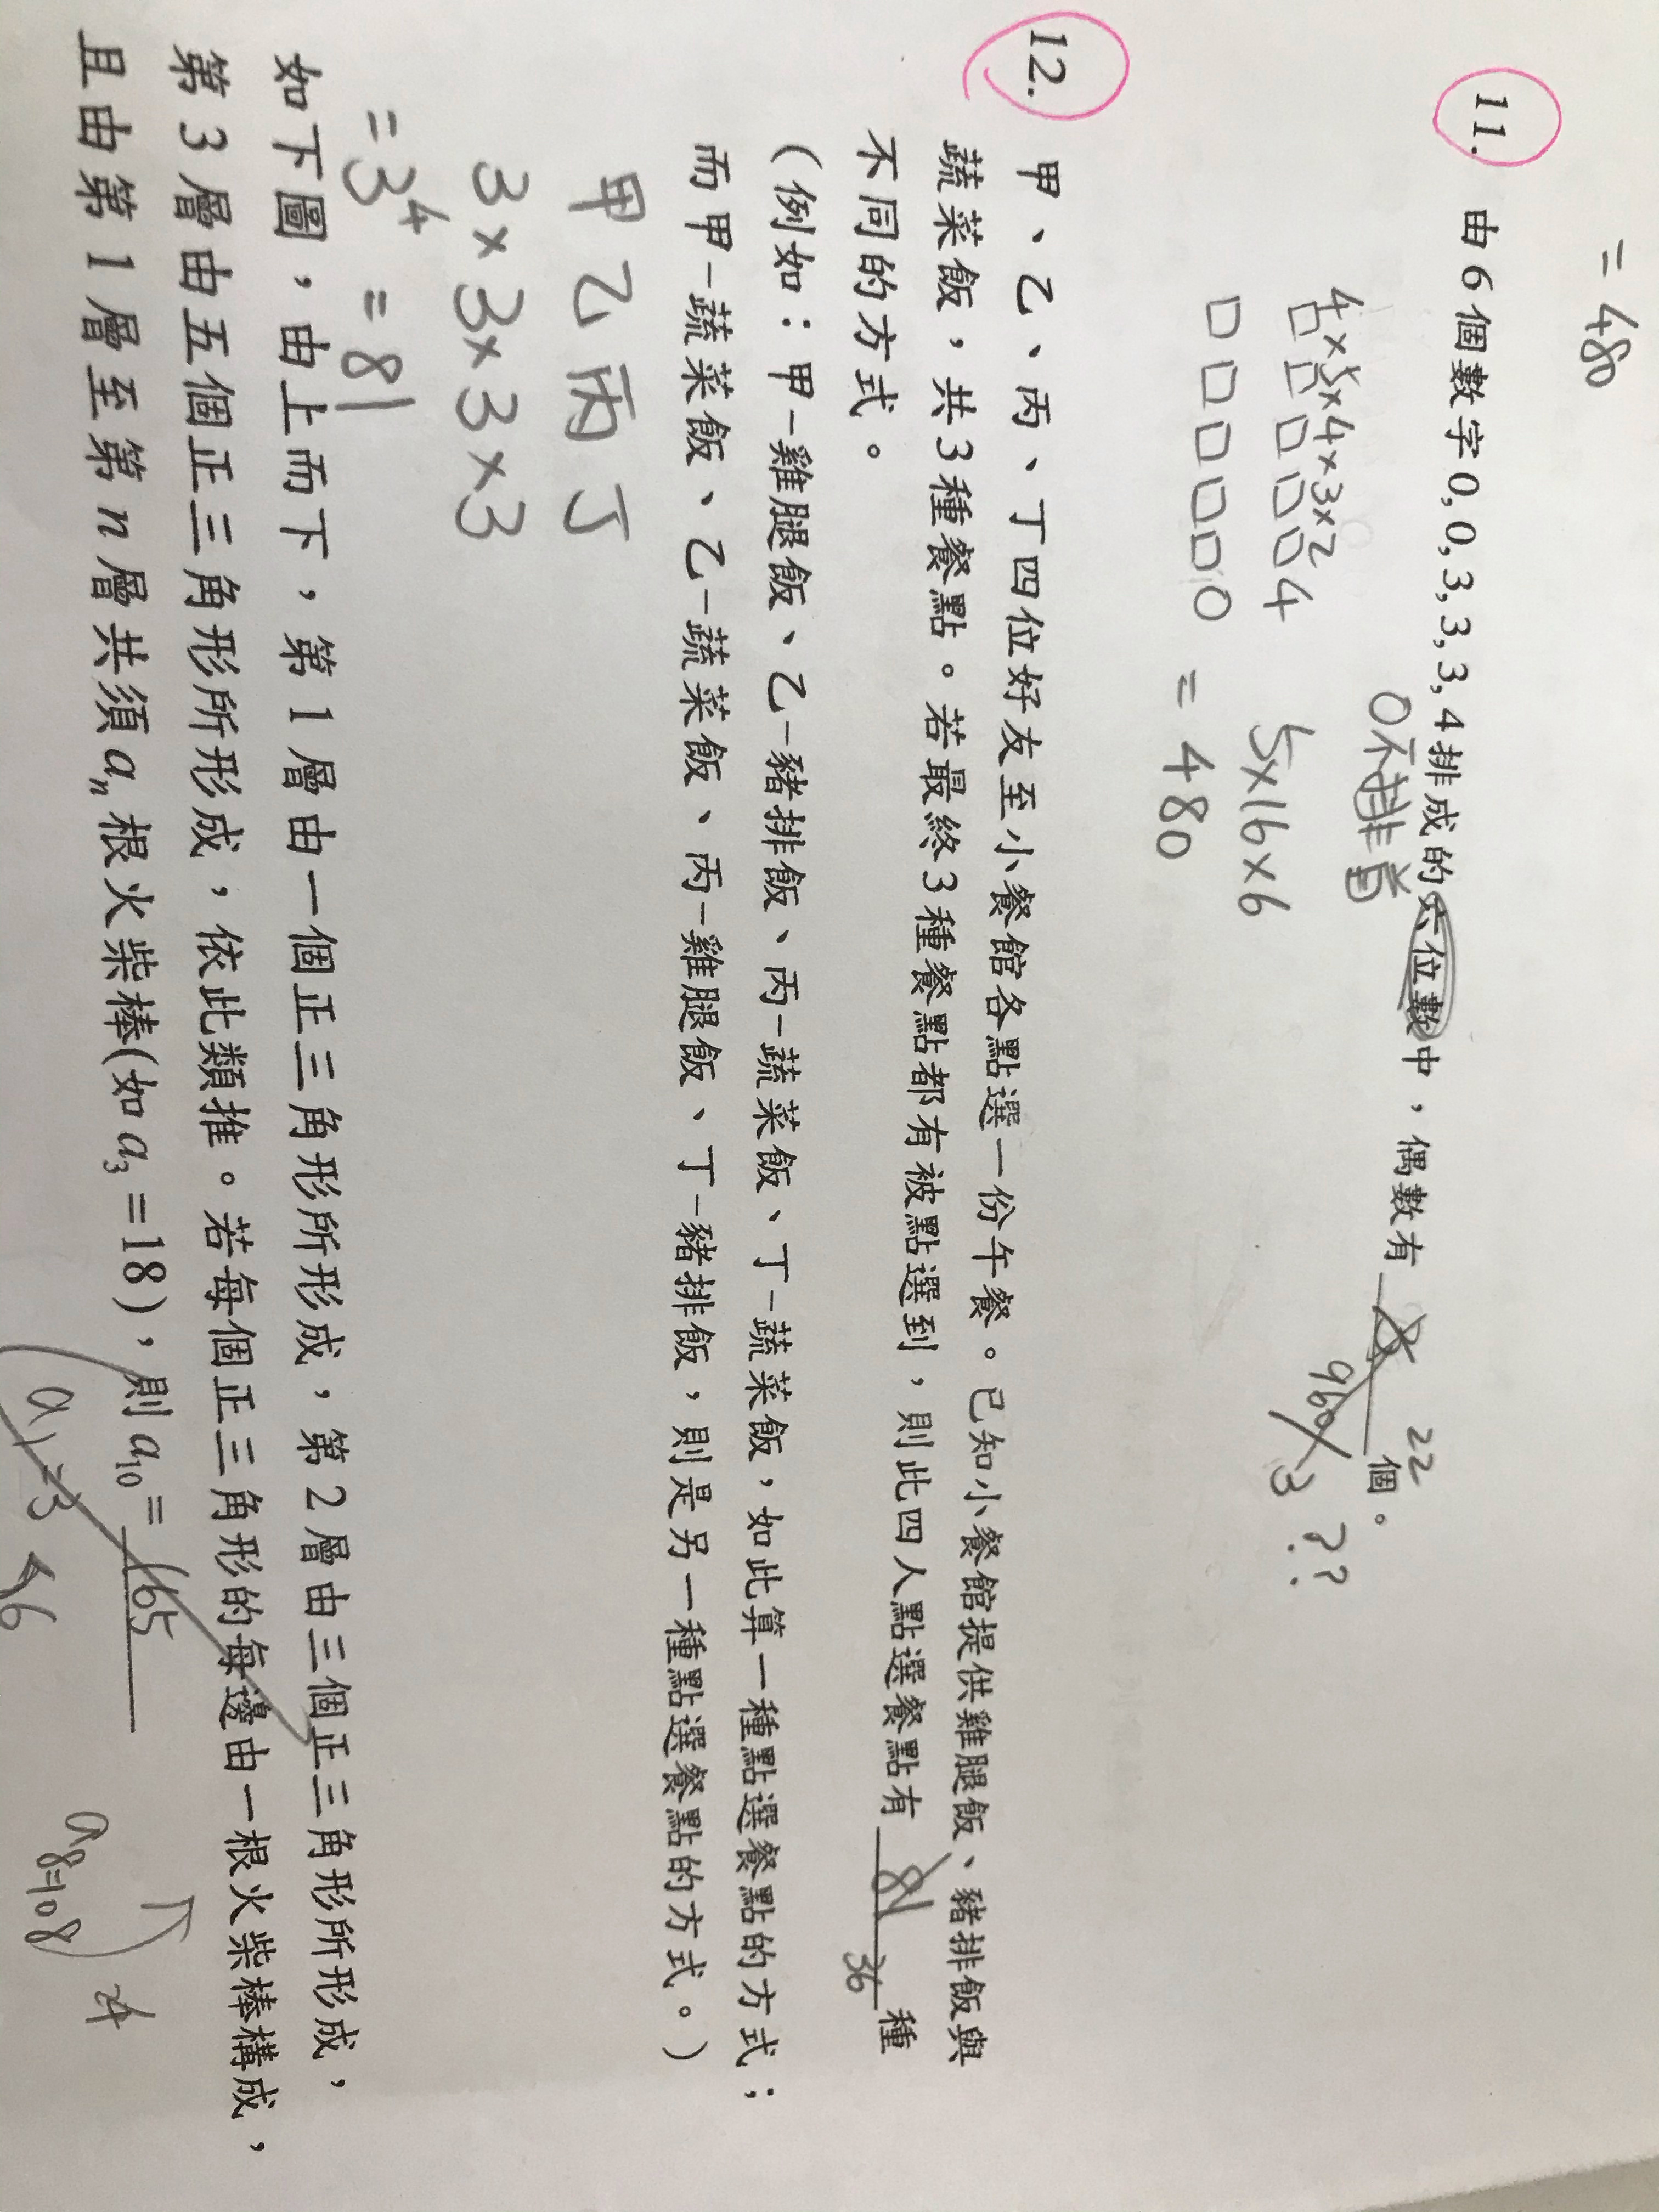 = 480
11. 由6個數字0,0,3,3,3,4排成的六位數中,偶數有____個。
22
960
3 ??
0不排首
4×3×4×3×2
□□□□□4
5×16×6
□□□□□0
= 480
12. 甲、乙、丙、丁四位好友至小餐館各點選一份午餐。已知小餐館提供雞腿飯、豬排飯與
蔬菜飯,共3種餐點。若最終3種餐點都有被點選到,則此四人點選餐點有 81 種
36
不同的方式。
(例如:甲-雞腿飯、乙-豬排飯、丙-蔬菜飯、丁-蔬菜飯,如此算一種點選餐點的方式;
而甲-蔬菜飯、乙-蔬菜飯、丙-雞腿飯、丁-豬排飯,則是另一種點選餐點的方式。)
甲 乙 丙 丁
3×3×3×3
=3⁴ = 81
如下圖,由上而下,第1層由一個正三角形所形成,第2層由三個正三角形所形成,
第3層由五個正三角形所形成,依此類推。若每個正三角形的每邊由一根火柴棒構成,
且由第1層至第n層共須aₙ根火柴棒(如a₃=18),則a₁₀= 165
a₁=3
a₈=108